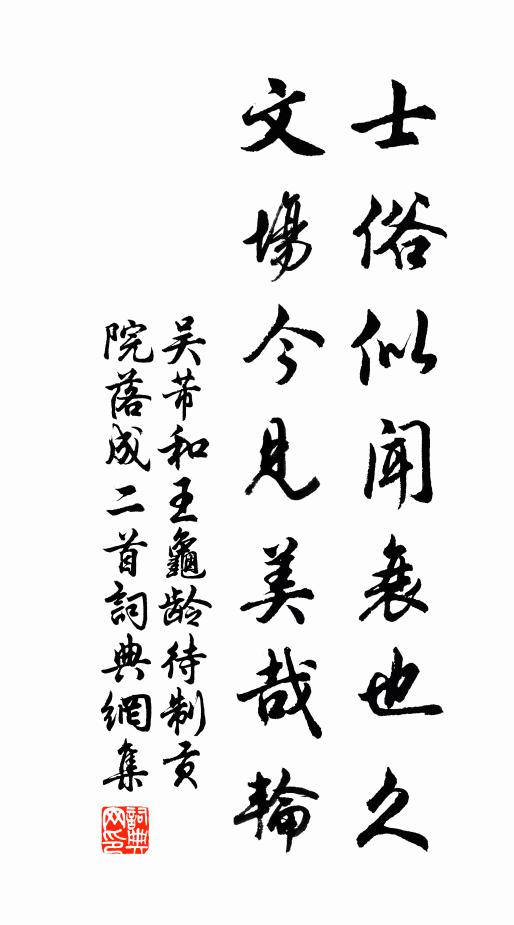 士俗似聞衰也久
文場今見美哉輪
吴芾和王龜龄待制贡
院落成二首詞典網集
詞典
网印